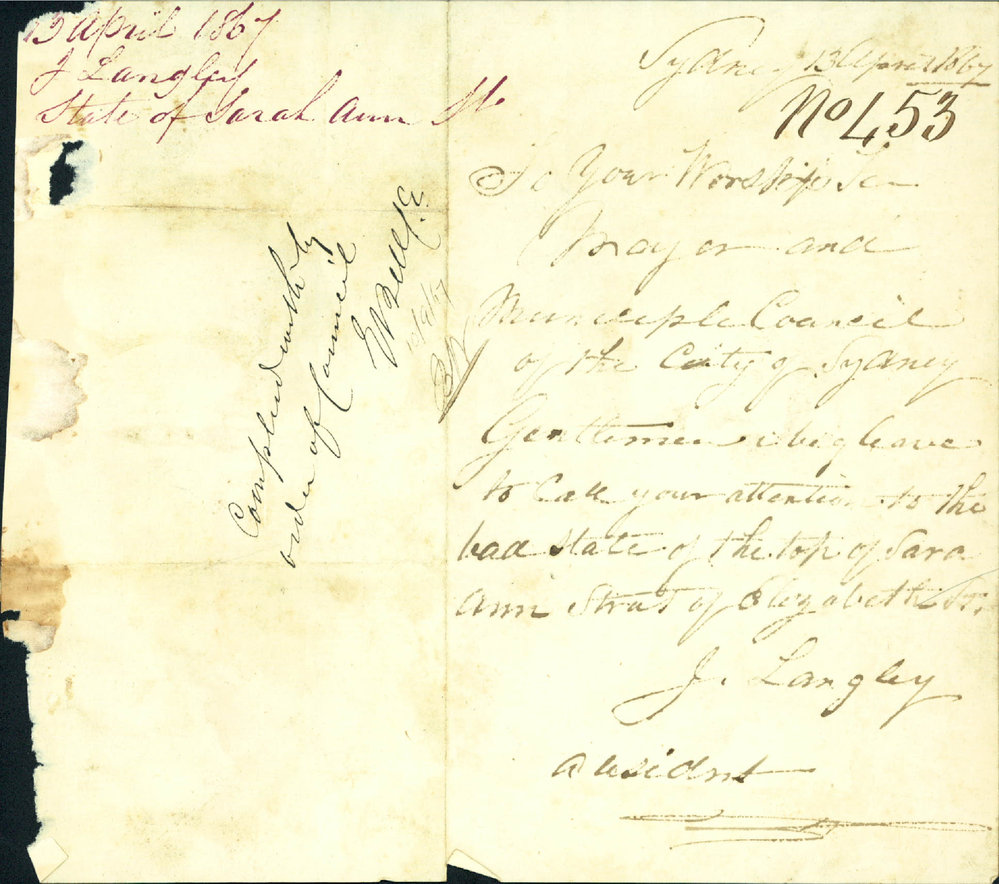 13 April 1867
J Langley
State of Sarah Ann St
Complied with by
order of Council
E Bell C.E.
Sydney 13 April 1867
No 453
To Your Worship The
Mayor and
Municiple Council
of the City of Sydney
Gentlemen i beg leave
to Call your attention to the
bad state of the top of Sara
Ann Street of Elizabeth St.
J. Langley
a resident